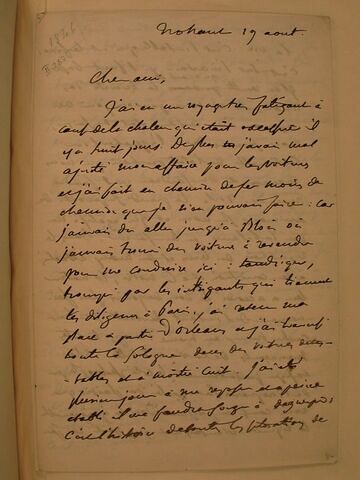 Nohant 19 aout.
1846
Cher ami,
J'ai eu un voyage très fatigant à
cause de la chaleur qui était excessive il
y a huit jours. De plus j'avais mal
ajusté mon affaire pour les voitures
et j'ai fait en chemin de fer moins de
chemin que je n'en pouvais faire : car
j'aurais du aller jusqu'à Blois où
j'aurais trouvé des voitures à revendre
pour me conduire ici : tandis que,
trompé par les intrigants qui tiennent
les diligences à Paris, j'ai retenu ma
place à partir d'Orléans et j'ai traversé
toute la Sologne dans des voitures détes-
-tables et à moitié cuit. J'ai été
plusieurs jours à me reposer et à peine
établi il me faudra songer à
C'est l'histoire de toutes les